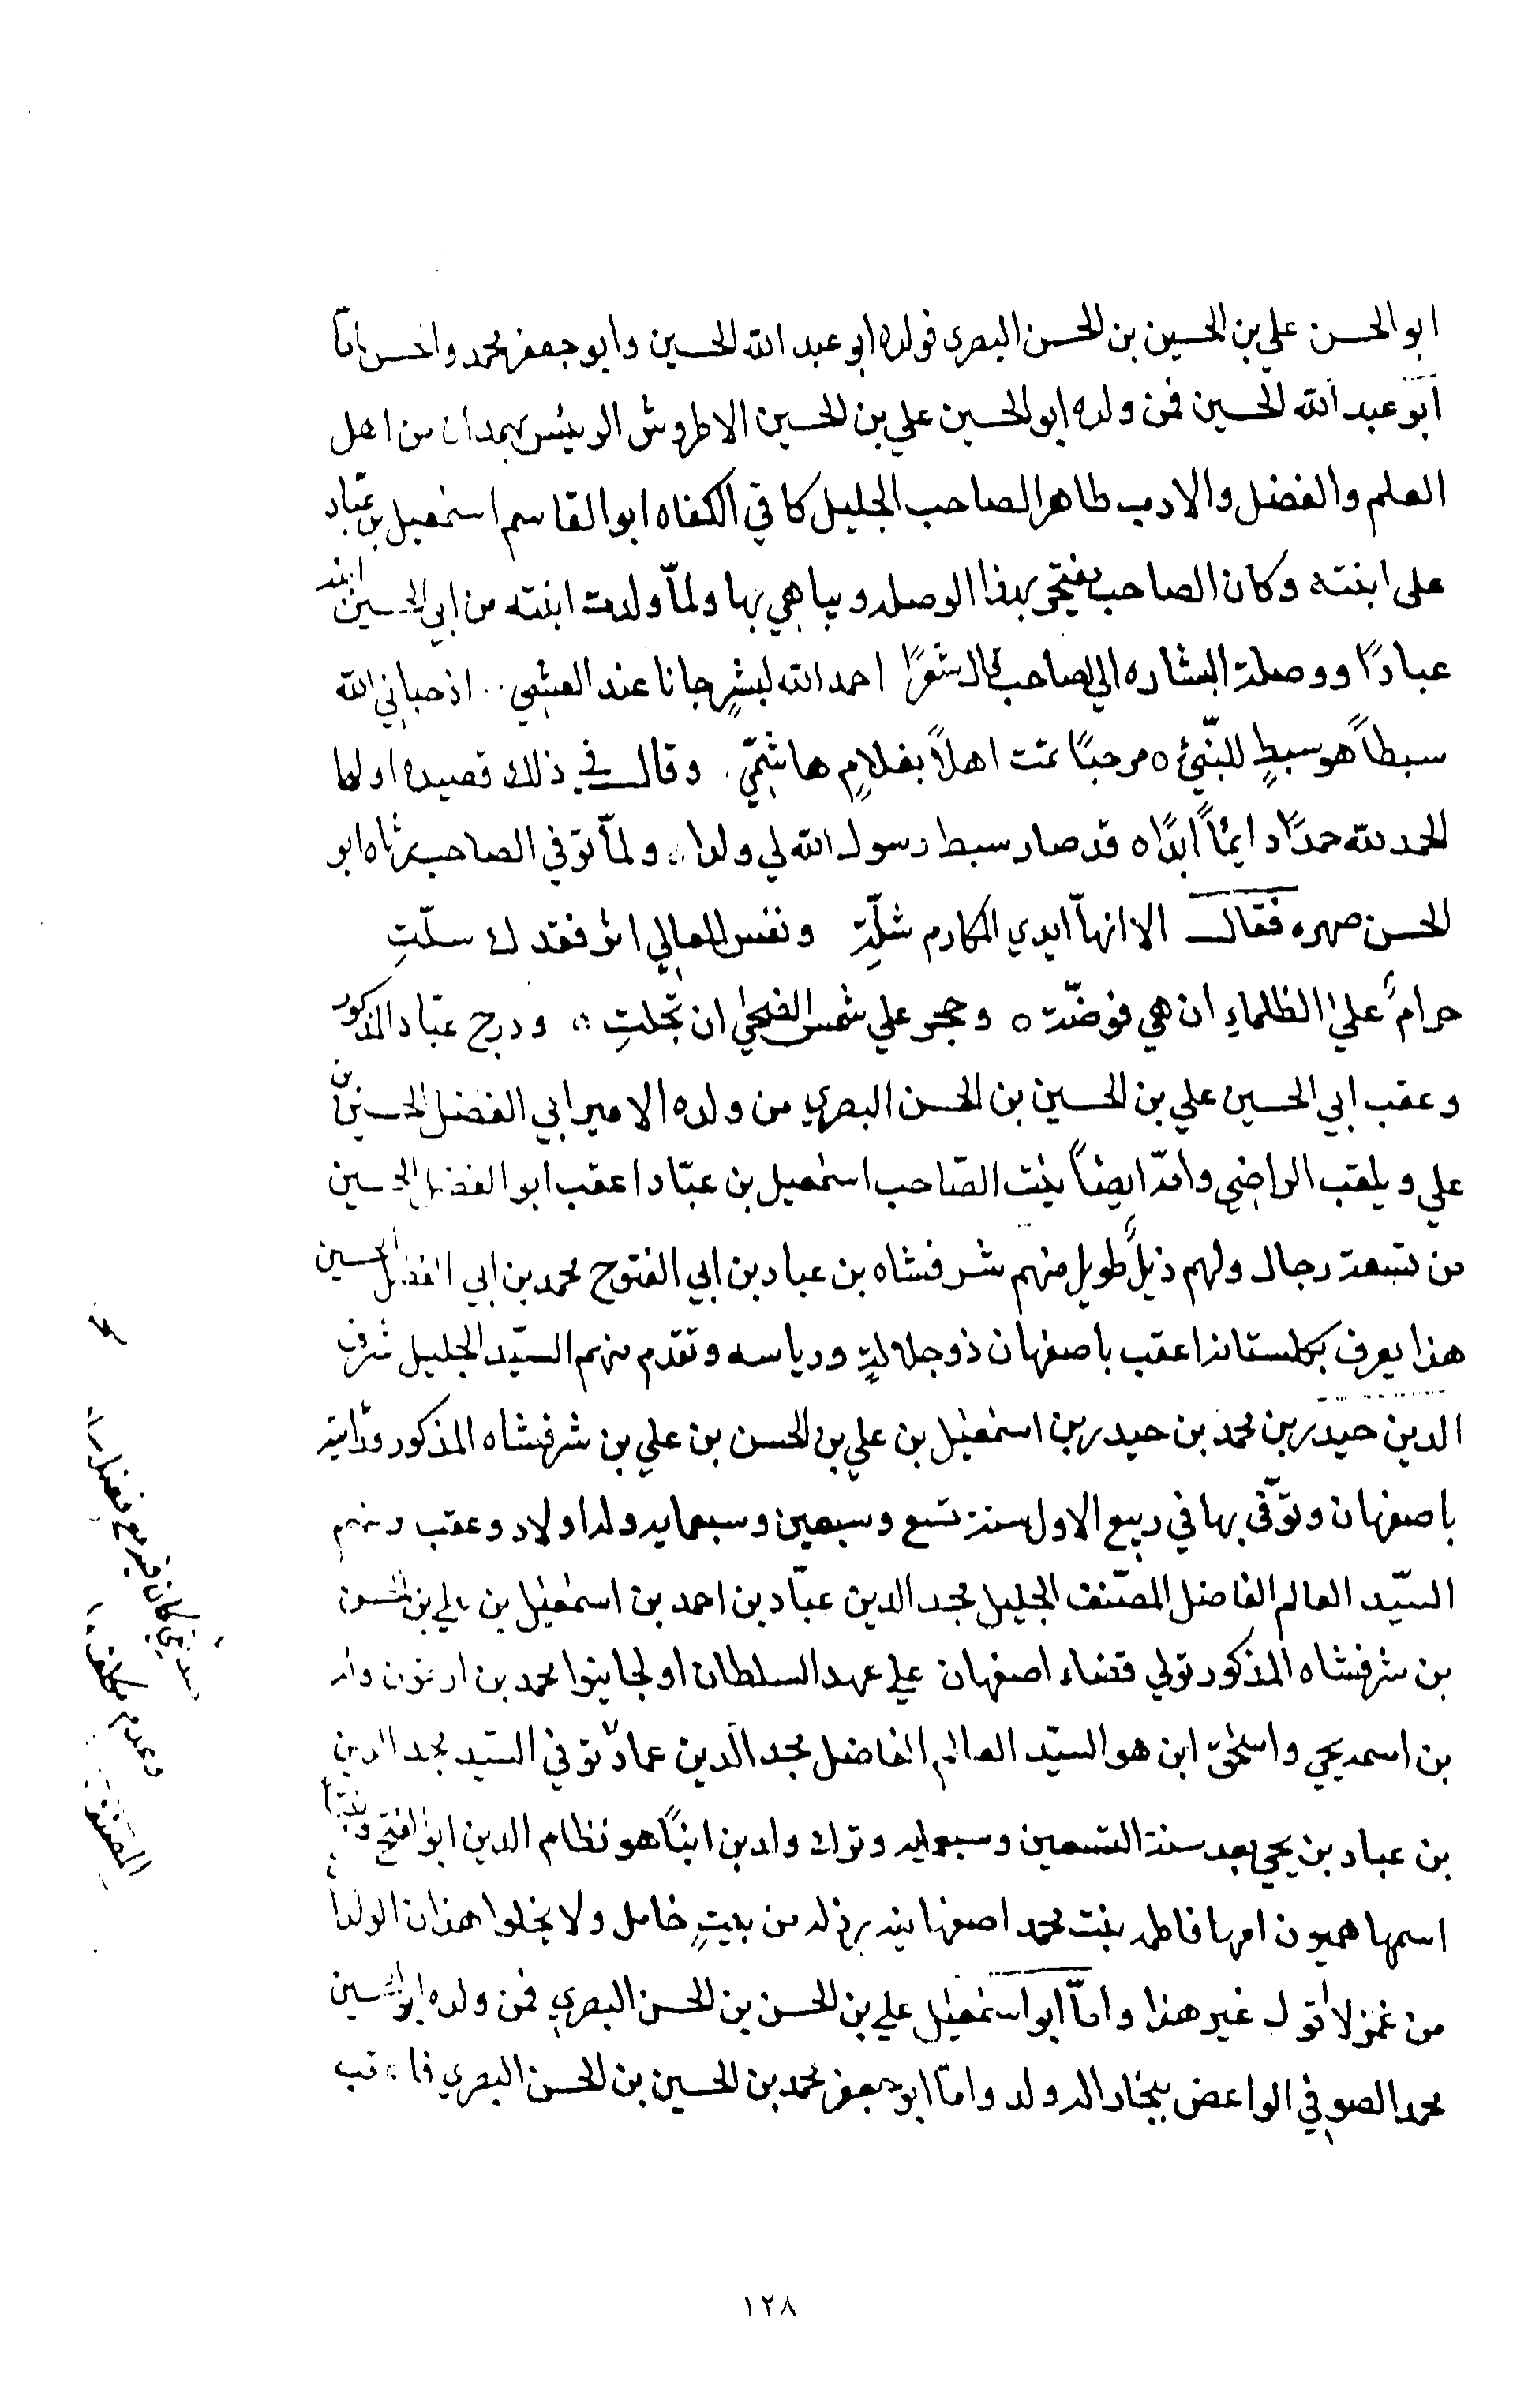 ابو الحسن علي بن الحسين بن الحسن البصرى فولده ابو عبد الله الحسين وابو جعفر محمد واخسن اما
ابو عبد الله الحسين فمن ولده ابو الحسين علي بن الحسين الاطروش الرئيس بهمدان من اهل
العلم والفضل والادب طاهر الصاحب الجليل كافي الكفاه ابو القاسم اسمعيل بن عبّاد
على ابنته وكان الصاحب يفتخر بهذا الوصله ويباهي بها ولمّا ولدت ابنته من ابي الحسين ابنه
عبادًا ووصلة البشاره الي الصاحب قال شعرًا احمد الله لبشرٍ جانا عند العشي .. اذ حباني الله
سبطاً هو سبطٍ للنّبيّ ه مرحبًا ثمت اهلاً بغلامٍ هاشميّ . وقال في ذلك قصيده اولها
الحمد لله حمدًا دايمًا ابدًا ه قد صار سبط رسول الله لي ولدا ؞ ولمّا توفي الصاحب رثاه ابو
الحسن صهره فقال الا انهاّ ايدي المكارم شلّتِ ونفس المعالي اثر فقدك سلّتِ
حرامٌ علي الظلماءِ ان هي فوضّت ه وحجر علي شمس الضحي ان تجلتِ ؞ ودرج عبّاد المذكور
وعقب ابي الحسين علي بن الحسين بن الحسن البصري من ولده الامير ابي الفضل الحسين بن
علي ويلقب الراضي وامّه ايضاً بنت الصّاحب اسمعيل بن عبّاد اعقب ابو الفضل الحسين
من تسعة رجال ولهم ذيلٌ طويل منهم شرفشاه بن عباد بن ابي الفتوح محمد بن ابي الفضل الحسين
هذا يعرف بكلستانه اعقب باصفهان ذو جلالةٍ ورياسه وتقدم منهم السيّد الجليل شرف
الدين حيدر بن محمد بن حيدر بن اسمعيل بن علي بن الحسن بن علي بن شرفشاه المذكور رأيته
باصفهان وتوّفي بها في ربيع الاول سنة تسع وسبعين وسبعمايه وله اولاد وعقب ومنهم
السيّد العالم الفاضل المصنّف الجليل مجد الدين عبّاد بن احمد بن اسمعيل بن علي بن الحسن
بن شرفشاه المذكور تولي قضاء اصفهان علي عهد السلطان اولجايتوا محمد بن ارغون وله
بن اسمه يحي واسحٰق ابن هو السيّد العالم الفاضل مجد الدين عماد توفي السيّد مجد الدين
بن عباد بن يحي بعد سنة التسعين وسبعمايه وترك ولدين ابنًا هو نظام الدين ابو الفتح وبنتاً
اسمها هميون امها فاطمه بنت محمد اصفهانيه من بيتٍ خامل ولا يخلوا هذان الولدان
من غمز لا اقول غير هذا وامّا ابو اسمعيل علي بن الحسن بن الحسن البصري فمن ولده ابو الحسين
محمد الصوفي الواعض ببخارا له ولد وامّا ابو جعفر محمد بن الحسين بن الحسن البصري فاعقب
المصنف
١٢٨